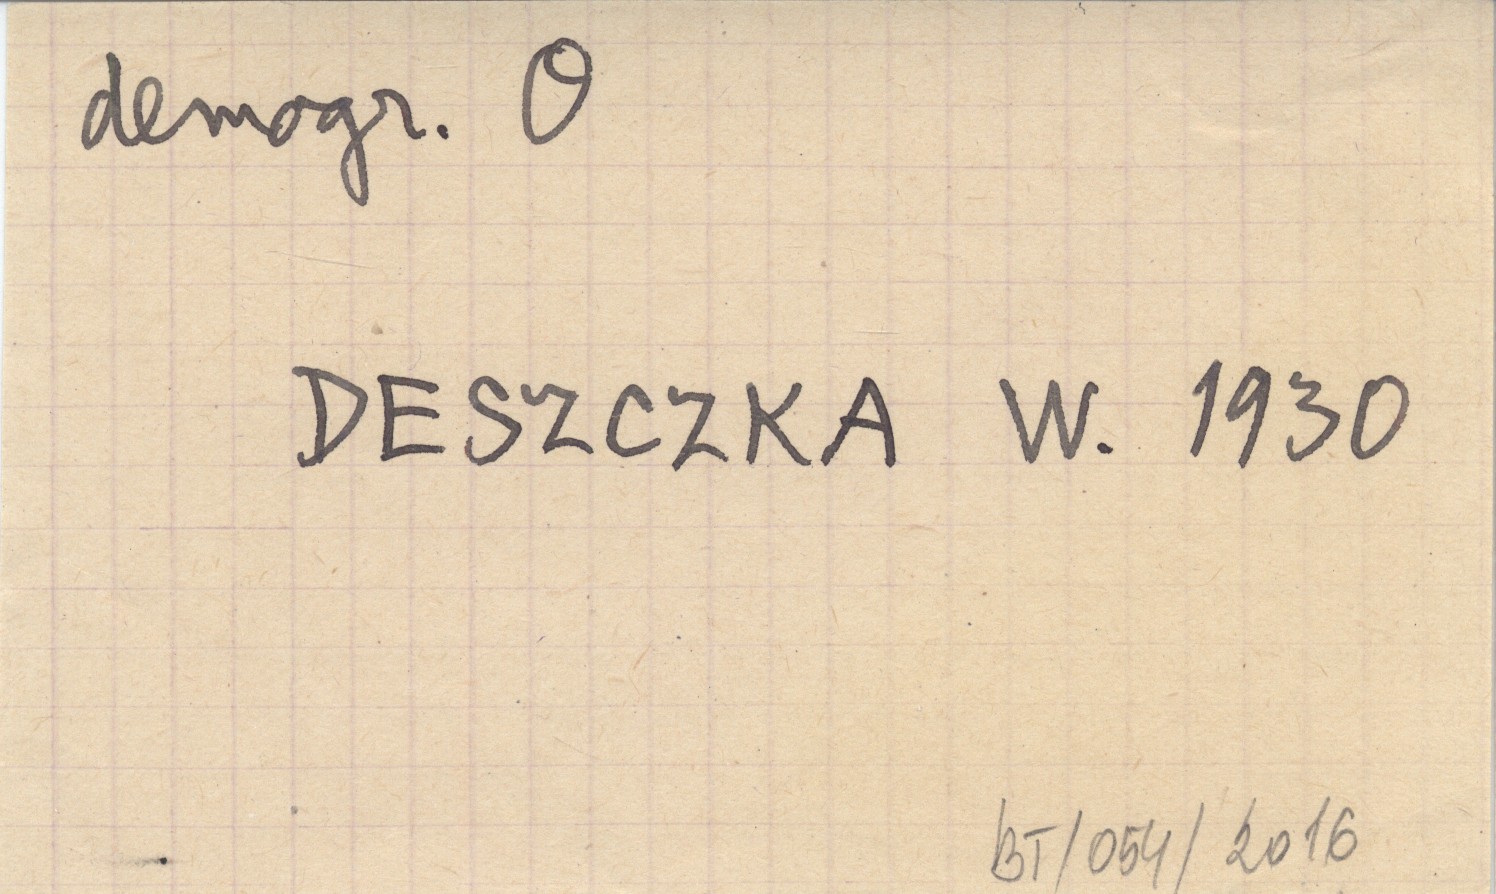 demogr. O
DESZCZKA W. 1930
BT/054/2016